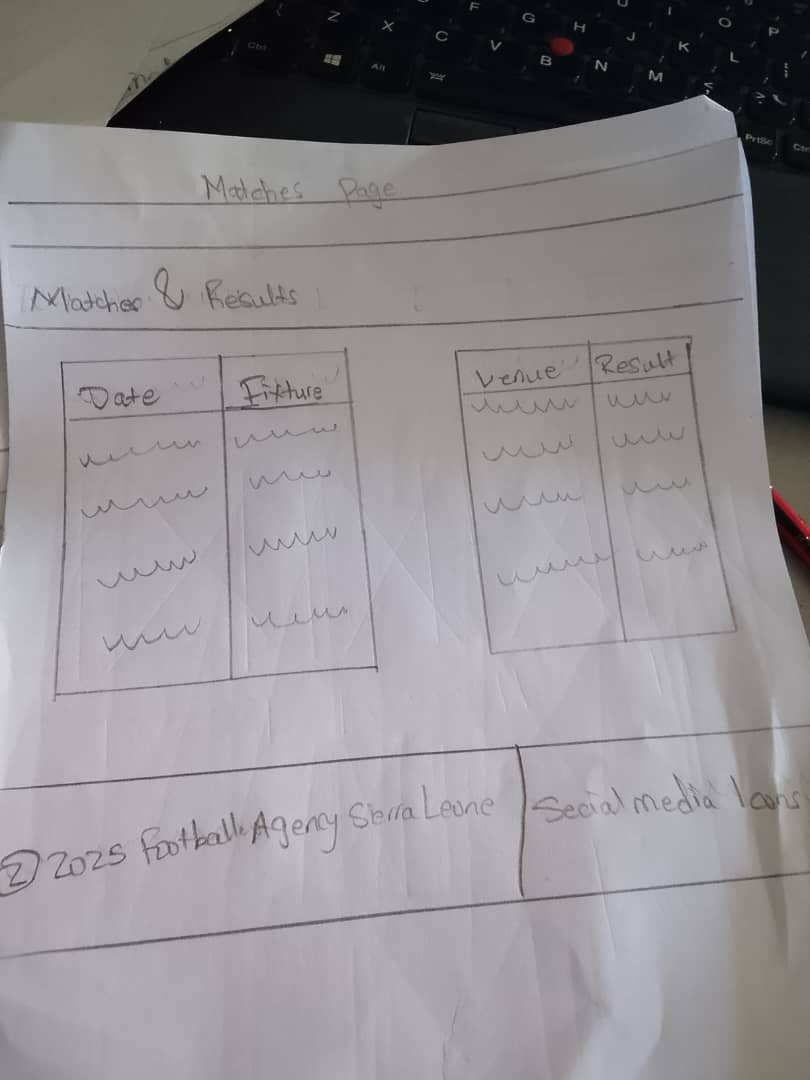 Z X C V B N M
F G H J K L
U I O P
Ctrl
Alt
PrtSc
Ctrl
Matches Page
Matches & Results
Date Fixture
Venue Result
2025 Football Agency Sierra Leone
Social media Icons